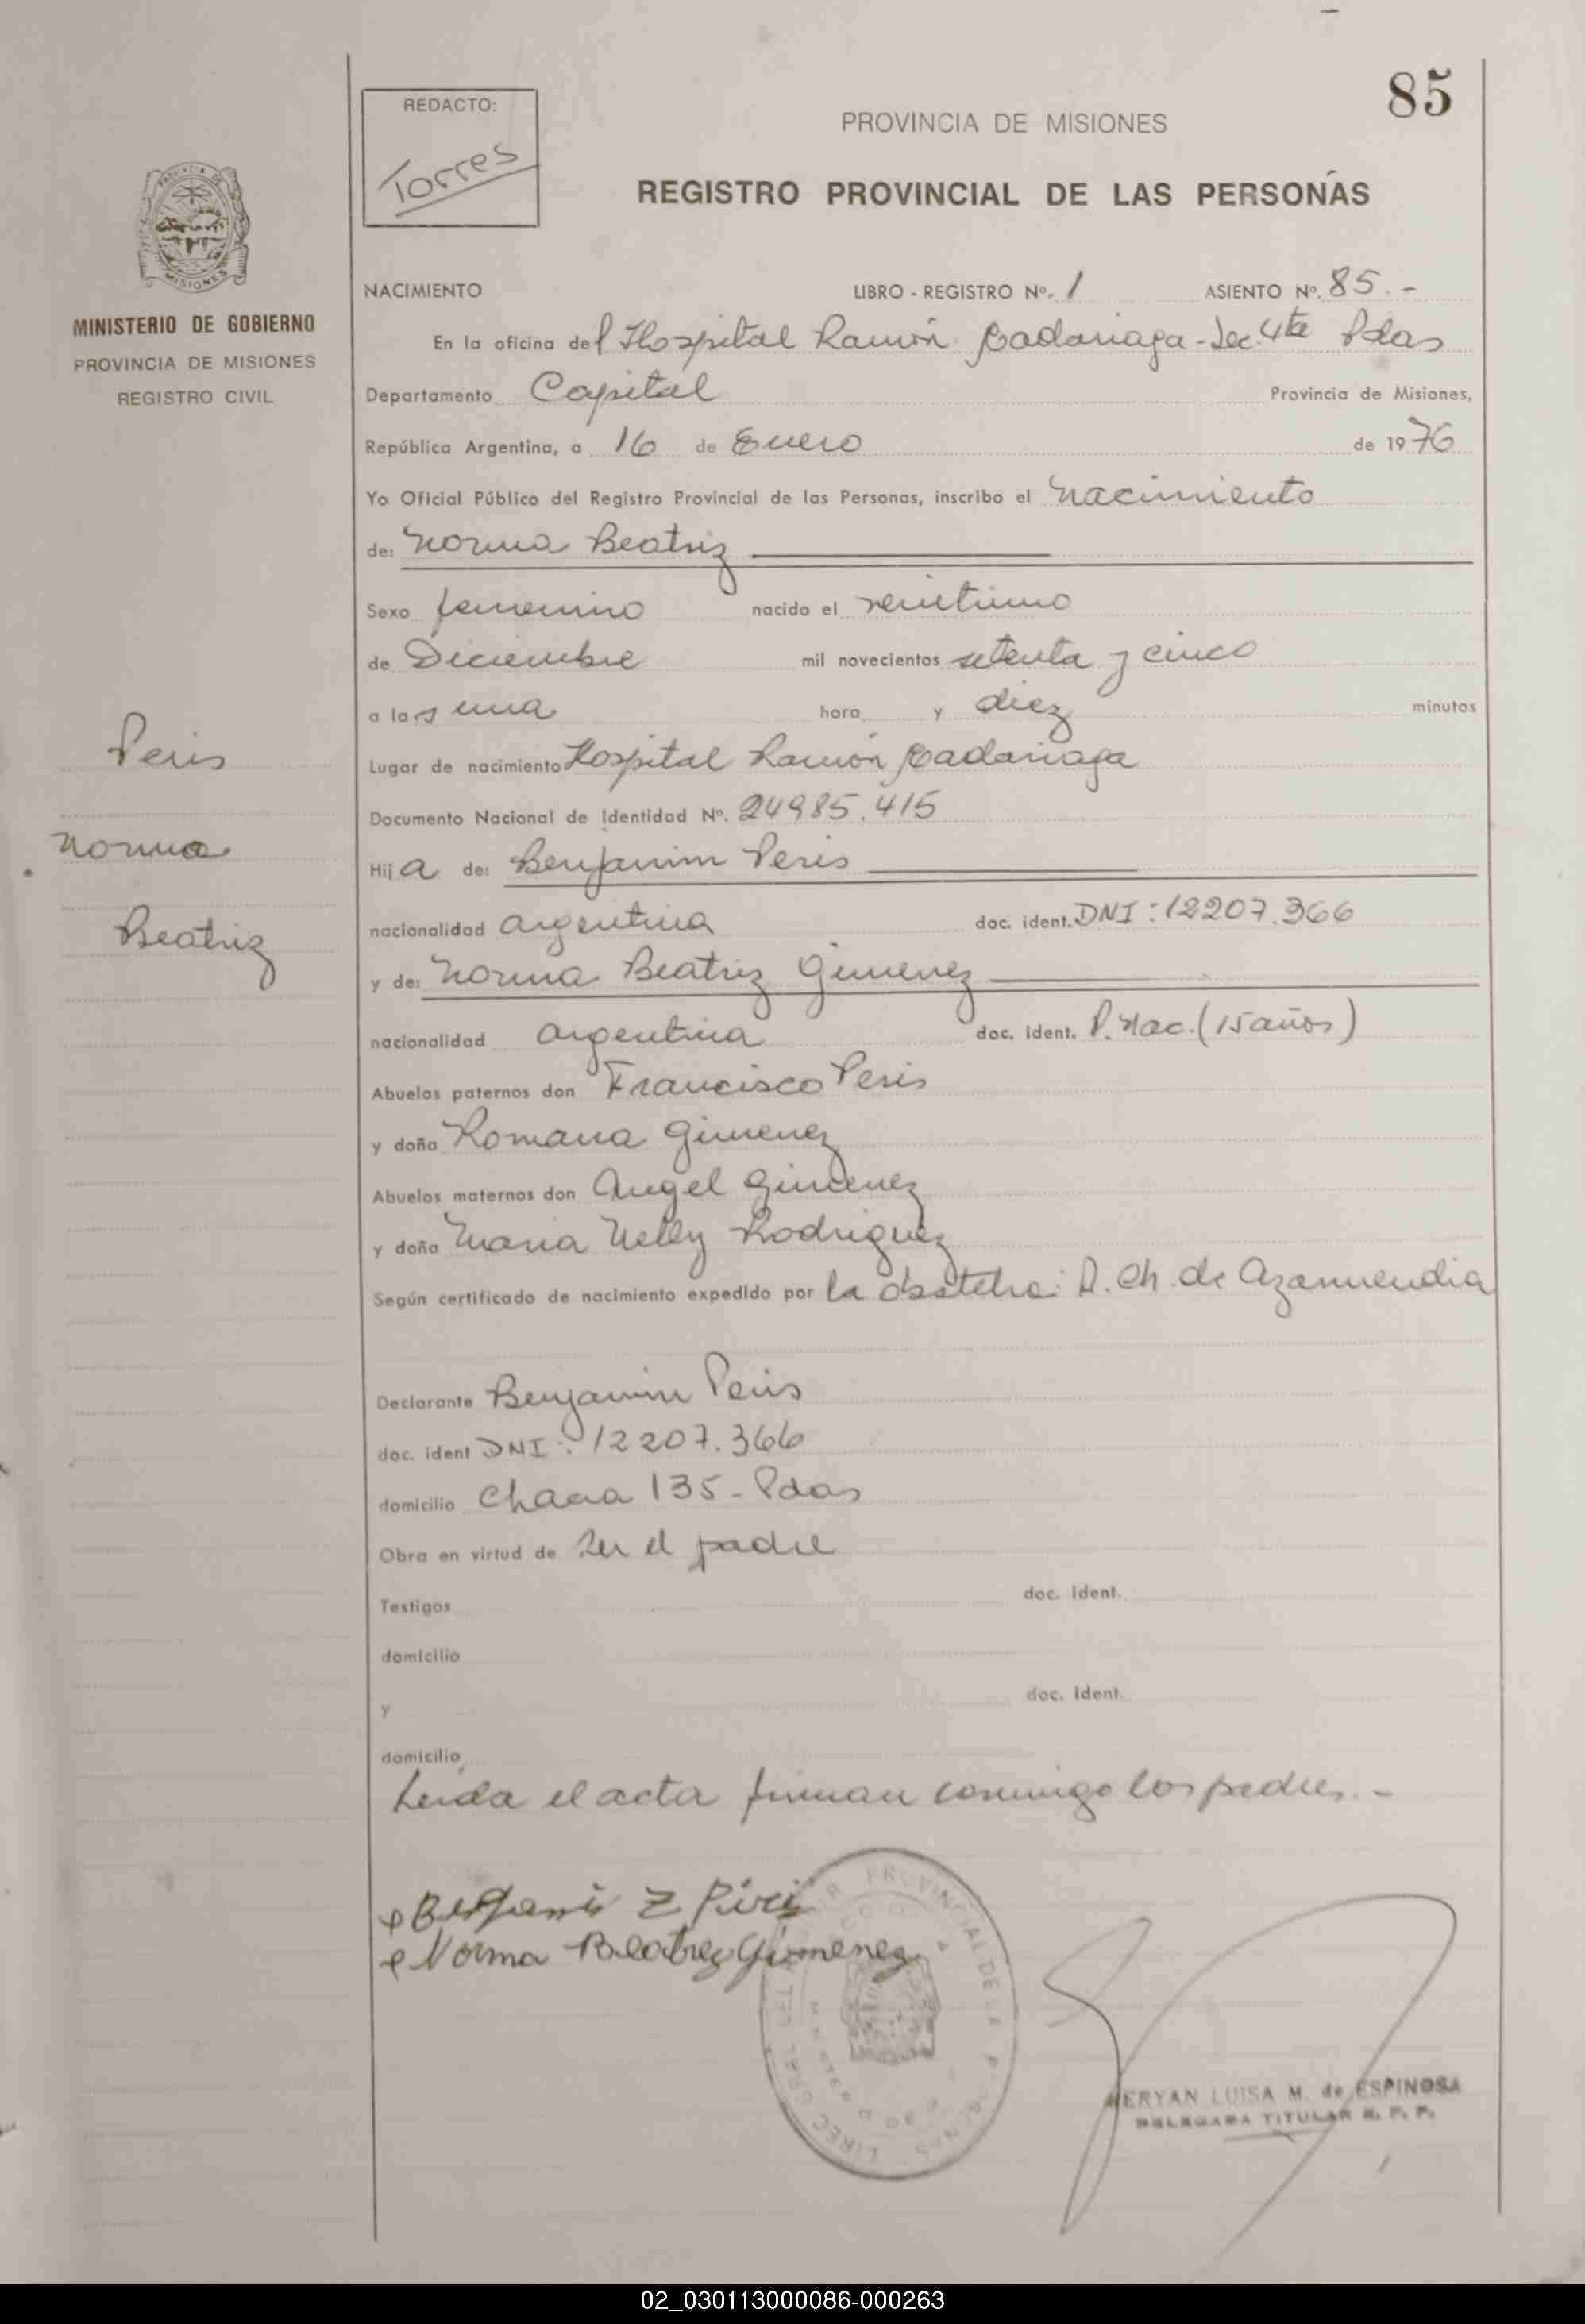 85
REDACTO:
Torres
PROVINCIA DE MISIONES
REGISTRO PROVINCIAL DE LAS PERSONAS
MISIONES
MINISTERIO DE GOBIERNO
PROVINCIA DE MISIONES
REGISTRO CIVIL
NACIMIENTO LIBRO - REGISTRO Nº. 1 ASIENTO Nº. 85.-
En la oficina del Hospital Ramón Madariaga - Sec. 4ta Pdas
Departamento Capital Provincia de Misiones,
República Argentina, a 16 de Enero de 1976
Yo Oficial Público del Registro Provincial de las Personas, inscribo el nacimiento
de: Norma Beatriz
Sexo femenino nacido el
de Diciembre mil novecientos setenta y cinco
a las una hora y diez minutos
Lugar de nacimiento Hospital Ramón Madariaga
Documento Nacional de Identidad Nº. 24985.415
Hija de: Benjamin Peris
nacionalidad argentina doc. ident. DNI: 12207.366
y de: Norma Beatriz Gimenez
nacionalidad argentina doc. ident. P. Nac. (15 años)
Abuelos paternos don Francisco Peris
y doña Romana Gimenez
Abuelos maternos don Angel Gimenez
y doña Maria Nelly Rodriguez
Según certificado de nacimiento expedido por la obstetra: D. Ch. de Azarmendia
Declarante Benjamin Peris
doc. ident DNI: 12207.366
domicilio Chacra 135 - Pdas
Obra en virtud de ser el padre
Testigos doc. ident.
domicilio
y doc. ident.
domicilio
Leida el acta firman conmigo los padres.-
Peris
Norma
Beatriz
Benjamin Z Piris
Norma Beatriz Gimenez
PROVINCIAL DE LA PERSONAS
NERYAN LUISA M. de ESPINOSA
DELEGADA TITULAR R. P. P.
02_030113000086-000263